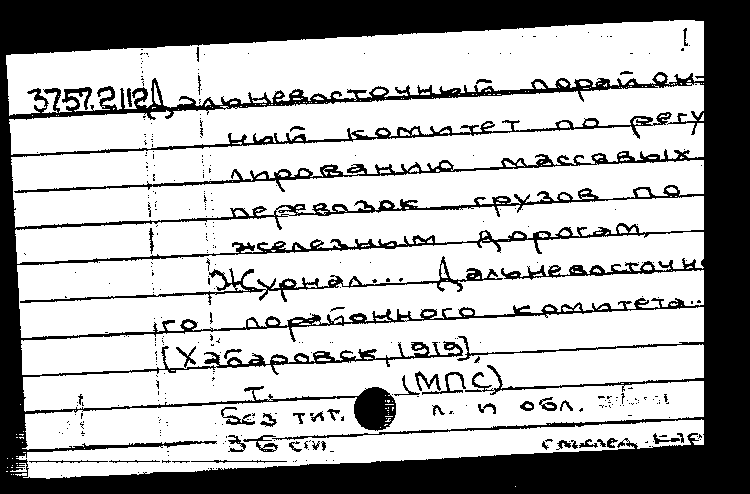 1
3757.2112 Дальневосточный порайон=
ный комитет по регу
лированию массавых
перевозок грузов по
железным дорогам,
Журнал... Дальневосточн
го порайонного комитета..
[Хабаровск, 1919],
т. (МПС)
Без тит. л. и обл.
36 см.